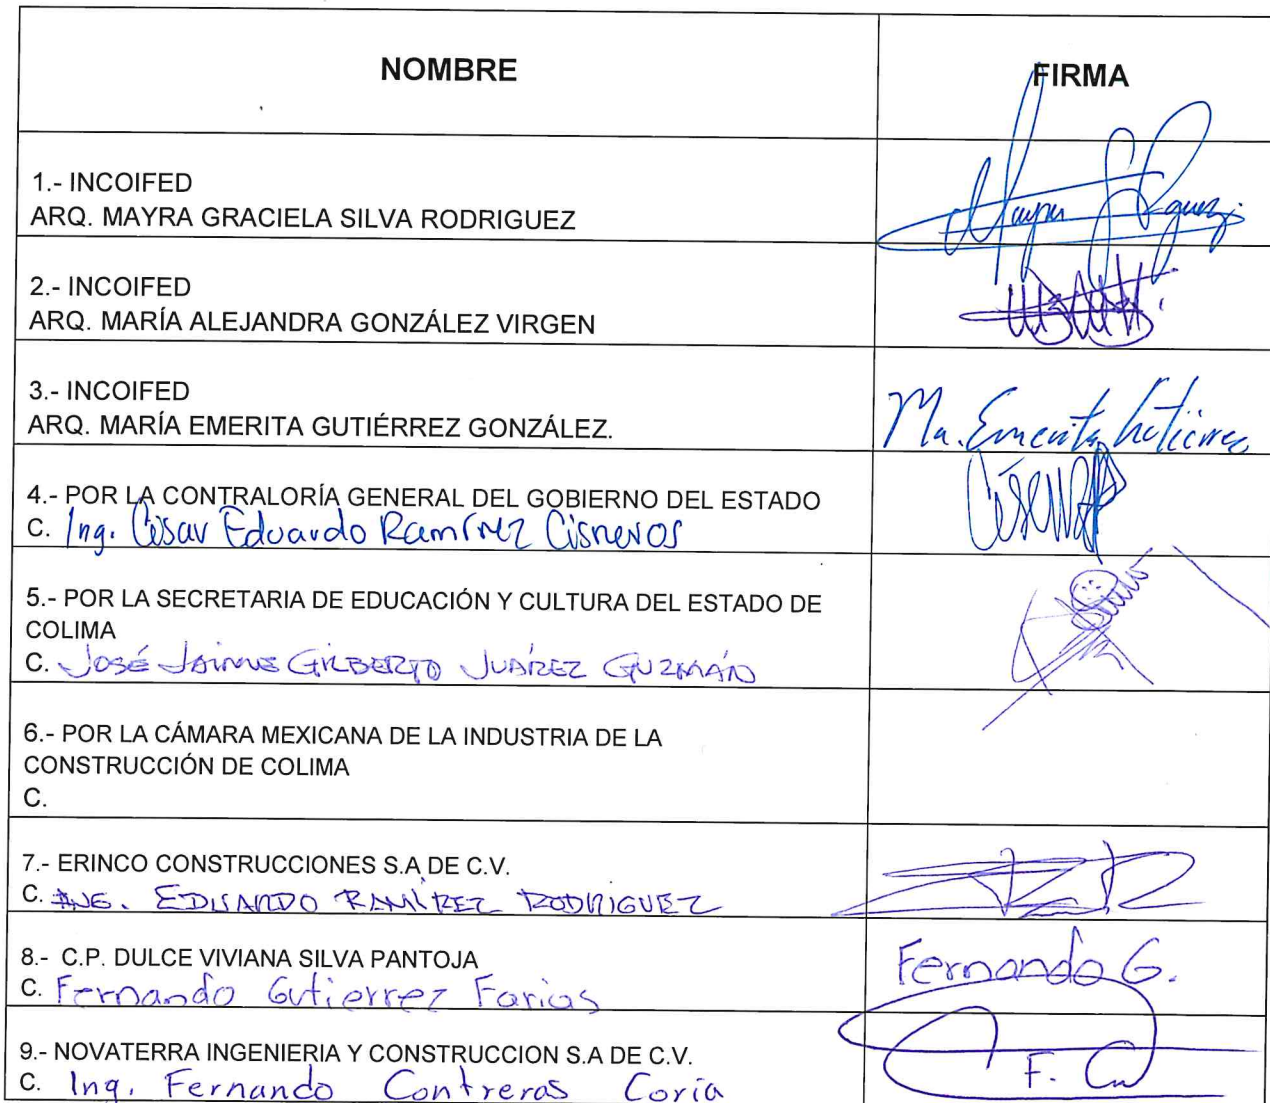 NOMBRE
FIRMA
1.- INCOIFED
ARQ. MAYRA GRACIELA SILVA RODRIGUEZ
2.- INCOIFED
ARQ. MARÍA ALEJANDRA GONZÁLEZ VIRGEN
3.- INCOIFED
ARQ. MARÍA EMERITA GUTIÉRREZ GONZÁLEZ.
Ma. Emerita Gutiérrez
4.- POR LA CONTRALORÍA GENERAL DEL GOBIERNO DEL ESTADO
C. Ing. César Eduardo Ramírez Cisneros
5.- POR LA SECRETARIA DE EDUCACIÓN Y CULTURA DEL ESTADO DE
COLIMA
C. JOSÉ JAIME GILBERTO JUÁREZ GUZMÁN
6.- POR LA CÁMARA MEXICANA DE LA INDUSTRIA DE LA
CONSTRUCCIÓN DE COLIMA
C.
7.- ERINCO CONSTRUCCIONES S.A DE C.V.
C. ING. EDUARDO RAMÍREZ RODRIGUEZ
8.- C.P. DULCE VIVIANA SILVA PANTOJA
C. Fernando Gutierrez Farias
Fernando G.
9.- NOVATERRA INGENIERIA Y CONSTRUCCION S.A DE C.V.
C. Ing. Fernando Contreras Coria